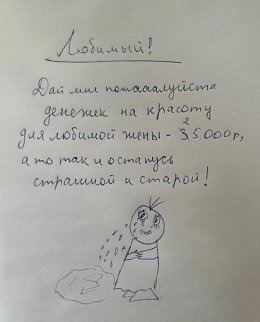 Любимый!
Дай мне пожаааалуйста
денежек на красоту
для любимой жены - 25.000 р,
а то так и останусь
страшной и старой!